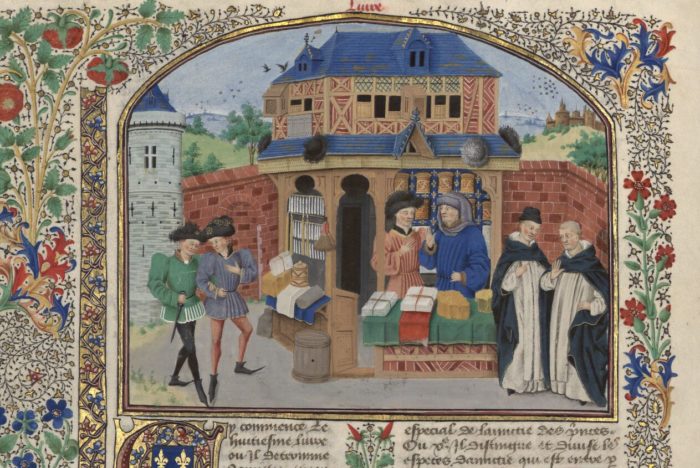 Livre
y commence le
huitiesme livre
ou il determine
especial de lamitie des princes
Ou xe. Il distingue et divise les
especes damitie qui est entre p